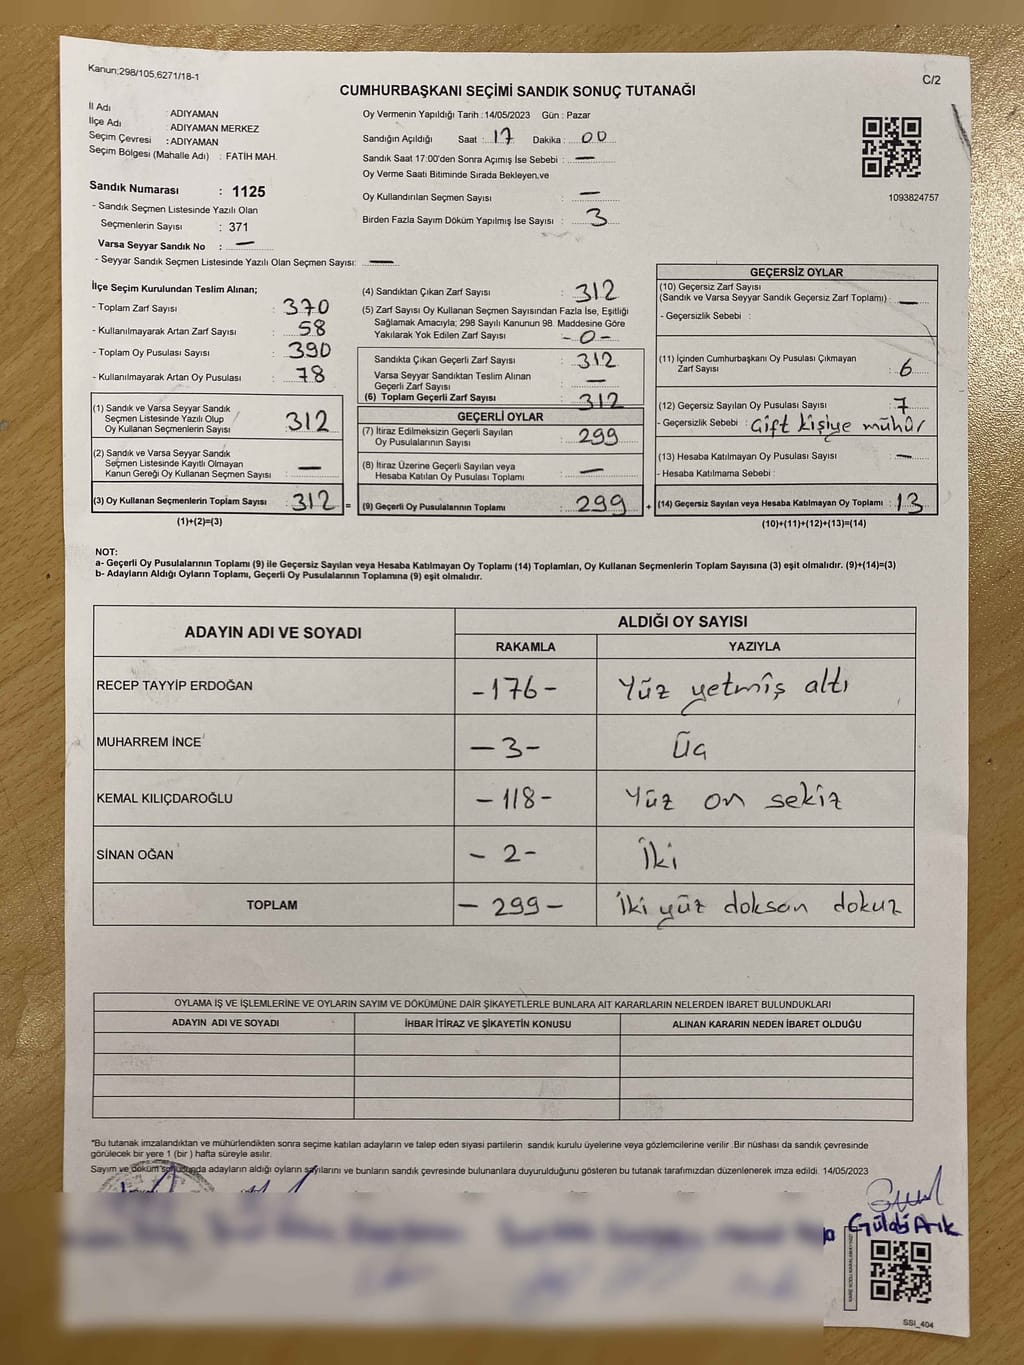 Kanun;298/105,6271/18-1
C/2
CUMHURBAŞKANI SEÇİMİ SANDIK SONUÇ TUTANAĞI
İl Adı : ADIYAMAN
İlçe Adı : ADIYAMAN MERKEZ
Seçim Çevresi : ADIYAMAN
Seçim Bölgesi (Mahalle Adı) : FATİH MAH.
Sandık Numarası : 1125
- Sandık Seçmen Listesinde Yazılı Olan
Seçmenlerin Sayısı : 371
Varsa Seyyar Sandık No : —
- Seyyar Sandık Seçmen Listesinde Yazılı Olan Seçmen Sayısı: —
Oy Vermenin Yapıldığı Tarih : 14/05/2023 Gün : Pazar
Sandığın Açıldığı Saat : 17 Dakika : 00
Sandık Saat 17:00'den Sonra Açımış İse Sebebi : —
Oy Verme Saati Bitiminde Sırada Bekleyen,ve
Oy Kullandırılan Seçmen Sayısı : —
Birden Fazla Sayım Döküm Yapılmış İse Sayısı : 3
1093824757
İlçe Seçim Kurulundan Teslim Alınan;
- Toplam Zarf Sayısı : 370
- Kullanılmayarak Artan Zarf Sayısı : 58
- Toplam Oy Pusulası Sayısı : 390
- Kullanılmayarak Artan Oy Pusulası : 78
(1) Sandık ve Varsa Seyyar Sandık
Seçmen Listesinde Yazılı Olup
Oy Kullanan Seçmenlerin Sayısı : 312
(2) Sandık ve Varsa Seyyar Sandık
Seçmen Listesinde Kayıtlı Olmayan
Kanun Gereği Oy Kullanan Seçmen Sayısı : —
(3) Oy Kullanan Seçmenlerin Toplam Sayısı : 312 =
(1)+(2)=(3)
(4) Sandıktan Çıkan Zarf Sayısı : 312
(5) Zarf Sayısı Oy Kullanan Seçmen Sayısından Fazla İse, Eşitliği
Sağlamak Amacıyla; 298 Sayılı Kanunun 98. Maddesine Göre
Yakılarak Yok Edilen Zarf Sayısı : -0-
Sandıkta Çıkan Geçerli Zarf Sayısı : 312
Varsa Seyyar Sandıktan Teslim Alınan
Geçerli Zarf Sayısı : —
(6) Toplam Geçerli Zarf Sayısı : 312
GEÇERLİ OYLAR
(7) İtiraz Edilmeksizin Geçerli Sayılan
Oy Pusulalarının Sayısı : 299
(8) İtiraz Üzerine Geçerli Sayılan veya
Hesaba Katılan Oy Pusulası Toplamı : —
(9) Geçerli Oy Pusulalarının Toplamı : 299 +
GEÇERSİZ OYLAR
(10) Geçersiz Zarf Sayısı
(Sandık ve Varsa Seyyar Sandık Geçersiz Zarf Toplamı) : —
- Geçersizlik Sebebi :
(11) İçinden Cumhurbaşkanı Oy Pusulası Çıkmayan
Zarf Sayısı : 6
(12) Geçersiz Sayılan Oy Pusulası Sayısı : 7
- Geçersizlik Sebebi : Çift kişiye mühür
(13) Hesaba Katılmayan Oy Pusulası Sayısı : —
- Hesaba Katılmama Sebebi :
(14) Geçersiz Sayılan veya Hesaba Katılmayan Oy Toplamı : 13
(10)+(11)+(12)+(13)=(14)
NOT:
a- Geçerli Oy Pusulalarının Toplamı (9) ile Geçersiz Sayılan veya Hesaba Katılmayan Oy Toplamı (14) Toplamları, Oy Kullanan Seçmenlerin Toplam Sayısına (3) eşit olmalıdır. (9)+(14)=(3)
b- Adayların Aldığı Oyların Toplamı, Geçerli Oy Pusulalarının Toplamına (9) eşit olmalıdır.
ADAYIN ADI VE SOYADI
ALDIĞI OY SAYISI
RAKAMLA YAZIYLA
RECEP TAYYİP ERDOĞAN -176- Yüz yetmiş altı
MUHARREM İNCE -3- Üç
KEMAL KILIÇDAROĞLU -118- Yüz on sekiz
SİNAN OĞAN -2- İki
TOPLAM -299- İki yüz doksan dokuz
OYLAMA İŞ VE İŞLEMLERİNE VE OYLARIN SAYIM VE DÖKÜMÜNE DAİR ŞİKAYETLERLE BUNLARA AİT KARARLARIN NELERDEN İBARET BULUNDUKLARI
ADAYIN ADI VE SOYADI İHBAR İTİRAZ VE ŞİKAYETİN KONUSU ALINAN KARARIN NEDEN İBARET OLDUĞU
*Bu tutanak imzalandıktan ve mühürlendikten sonra seçime katılan adayların ve talep eden siyasi partilerin sandık kurulu üyelerine veya gözlemcilerine verilir .Bir nüshası da sandık çevresinde
görülecek bir yere 1 (bir ) hafta süreyle asılır.
Sayım ve döküm sonucunda adayların aldığı oyların sayılarını ve bunların sandık çevresinde bulunanlara duyurulduğunu gösteren bu tutanak tarafımızdan düzenlenerek imza edildi. 14/05/2023
Gülabi Arık
SSI_404